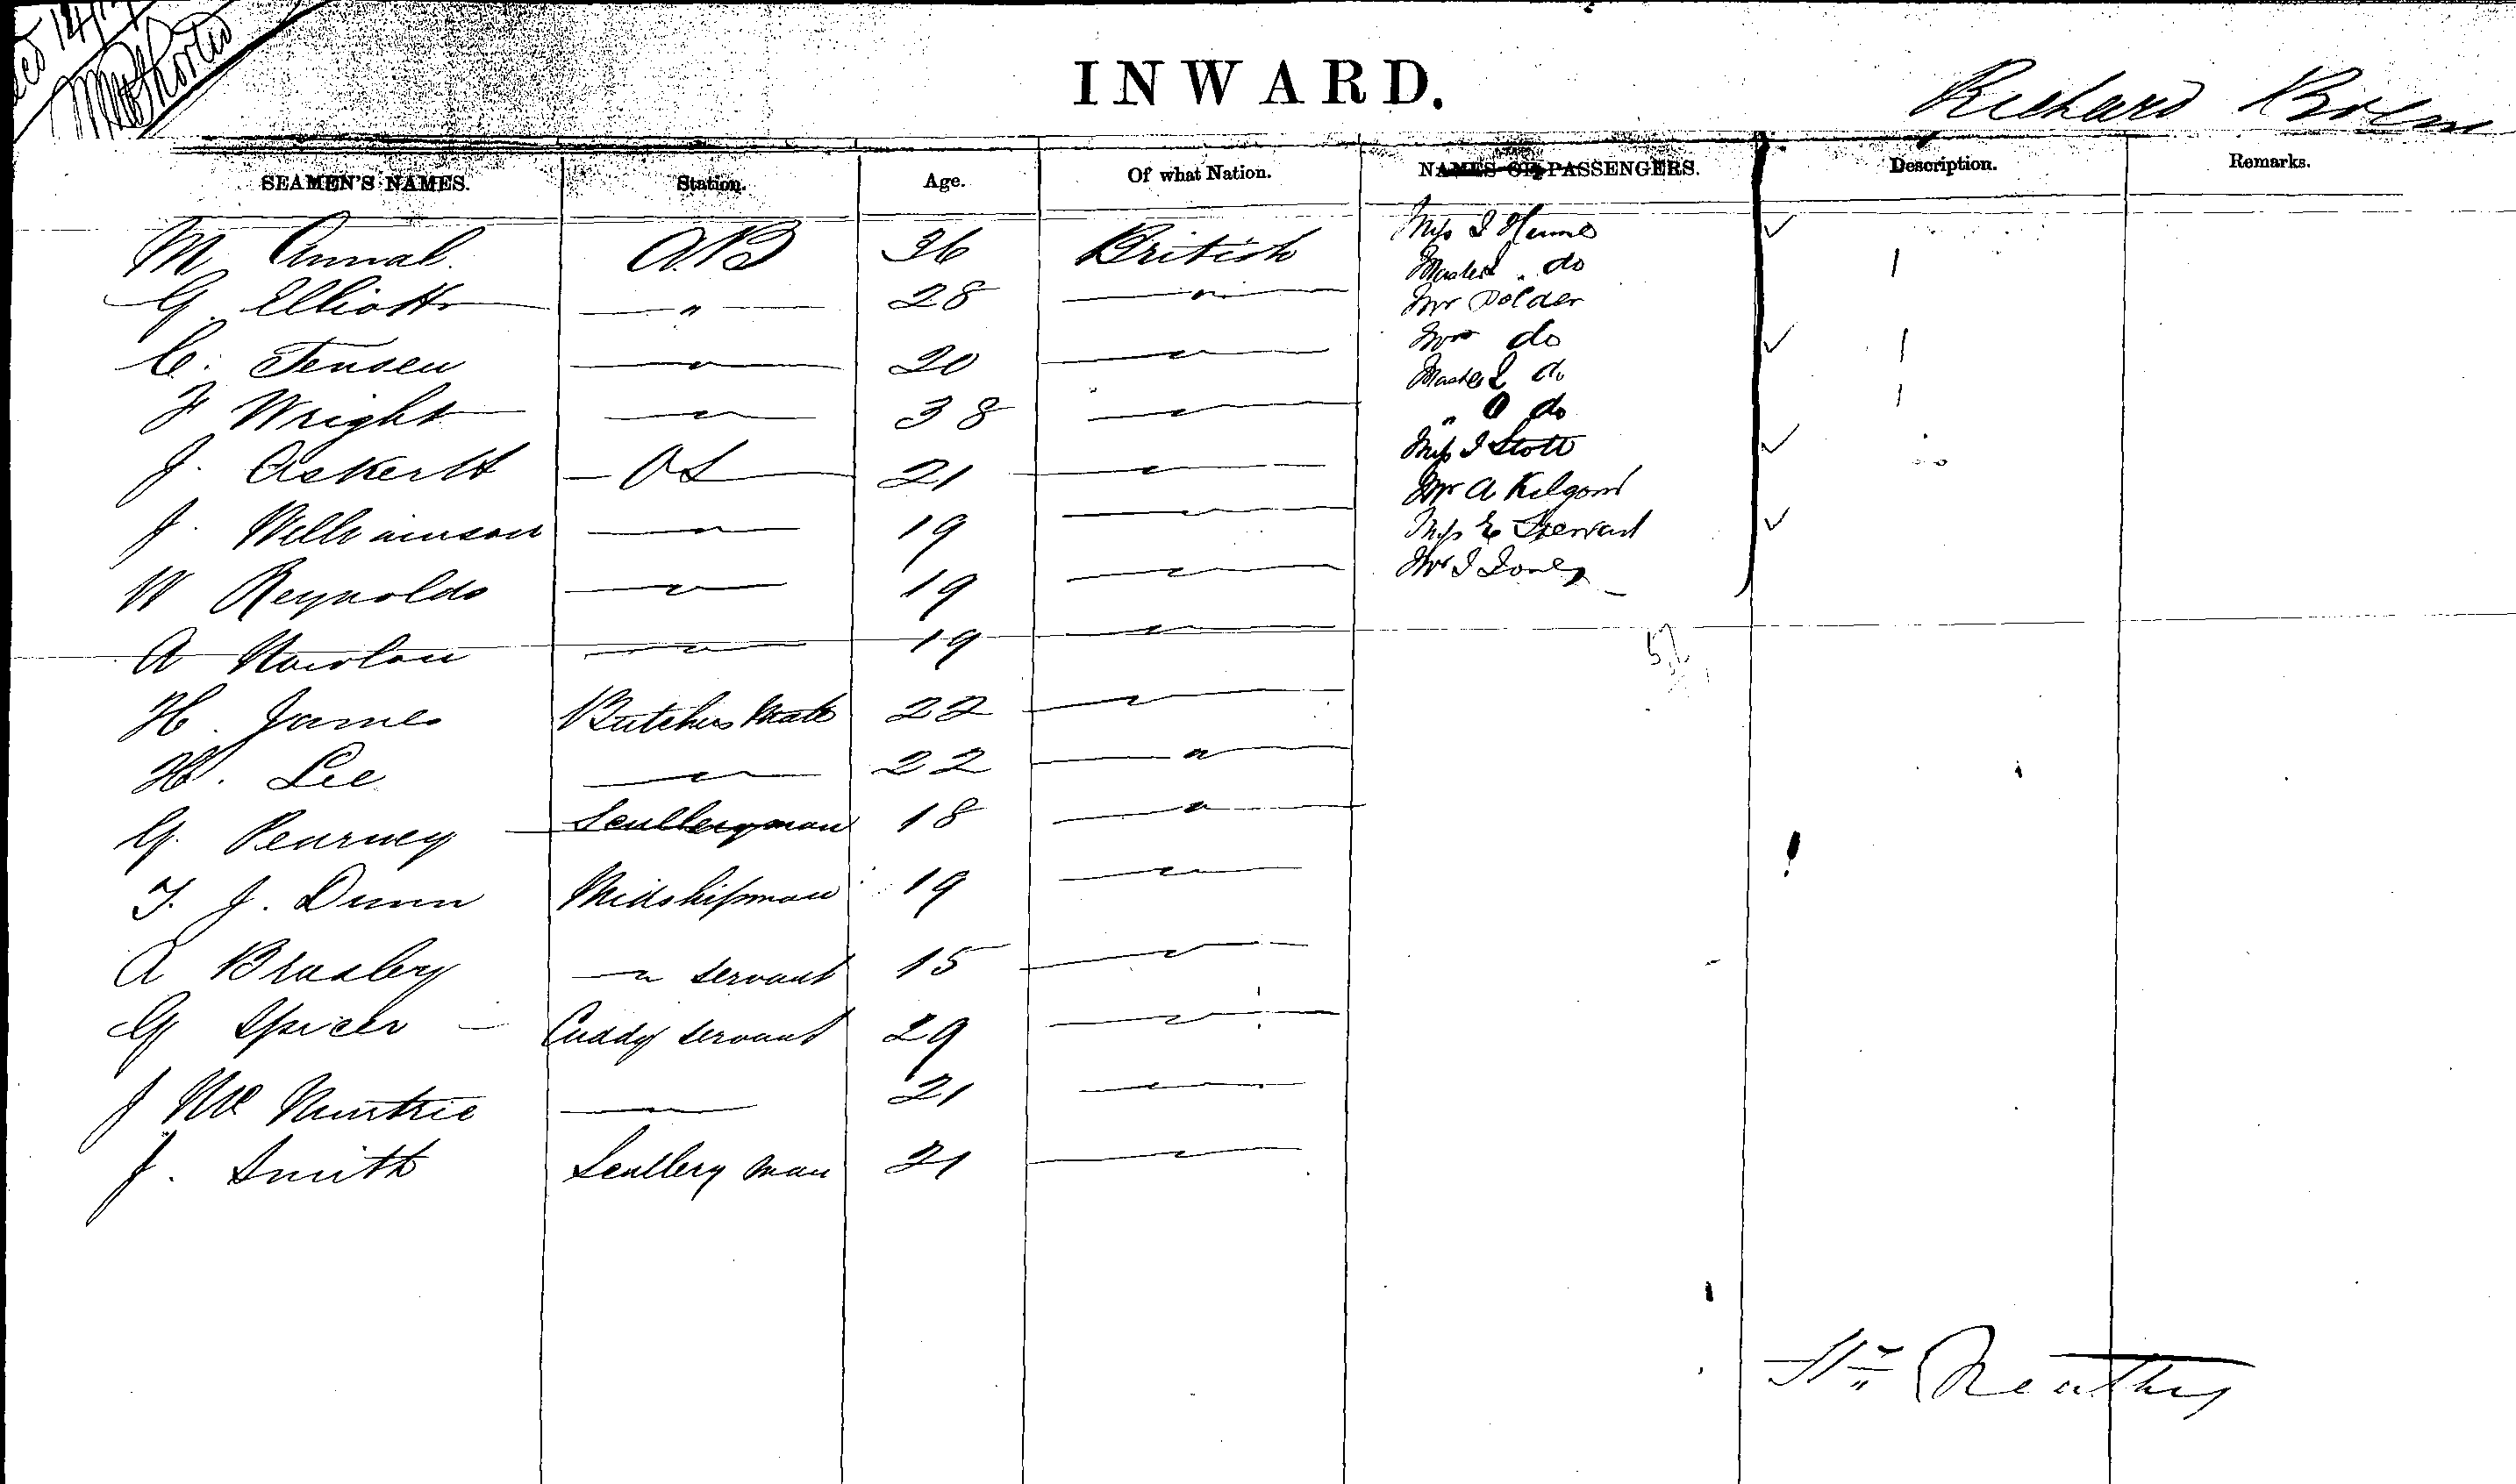 INWARD.
Richard
SEAMEN'S NAMES. Station. Age. Of what Nation. NAMES OF PASSENGERS. Description. Remarks.
M Annal A.B 36 British Miss I Hume ✓
Master do
G. Elliott — " — 28 — " — Mr Polder
C. Jensen — " — 20 — " — Mrs do ✓
Master do
F Wright — " — 38 — " — " O do
J. Askertt O S 21 — " — Miss I Stott ✓
Mr A Kilgour
J. Williamson — " — 19 — " — Miss E Stewart ✓
W Reynolds — " — 19 — " — Mr I Jones
A Nowlan — " — 19 — " —
H. James Butchers Mate 22 — " —
H. Lee — " — 22 — " —
G. Pearney Scullery man 18 — " —
T. J. Dunn Midshipman 19 — " —
A Brasley — " servant 15 — " —
G Spicer — Cuddy servant 29 — " —
J Mc Murtrie — " — 21 — " —
J. Smith Scullery Man 21 — " —